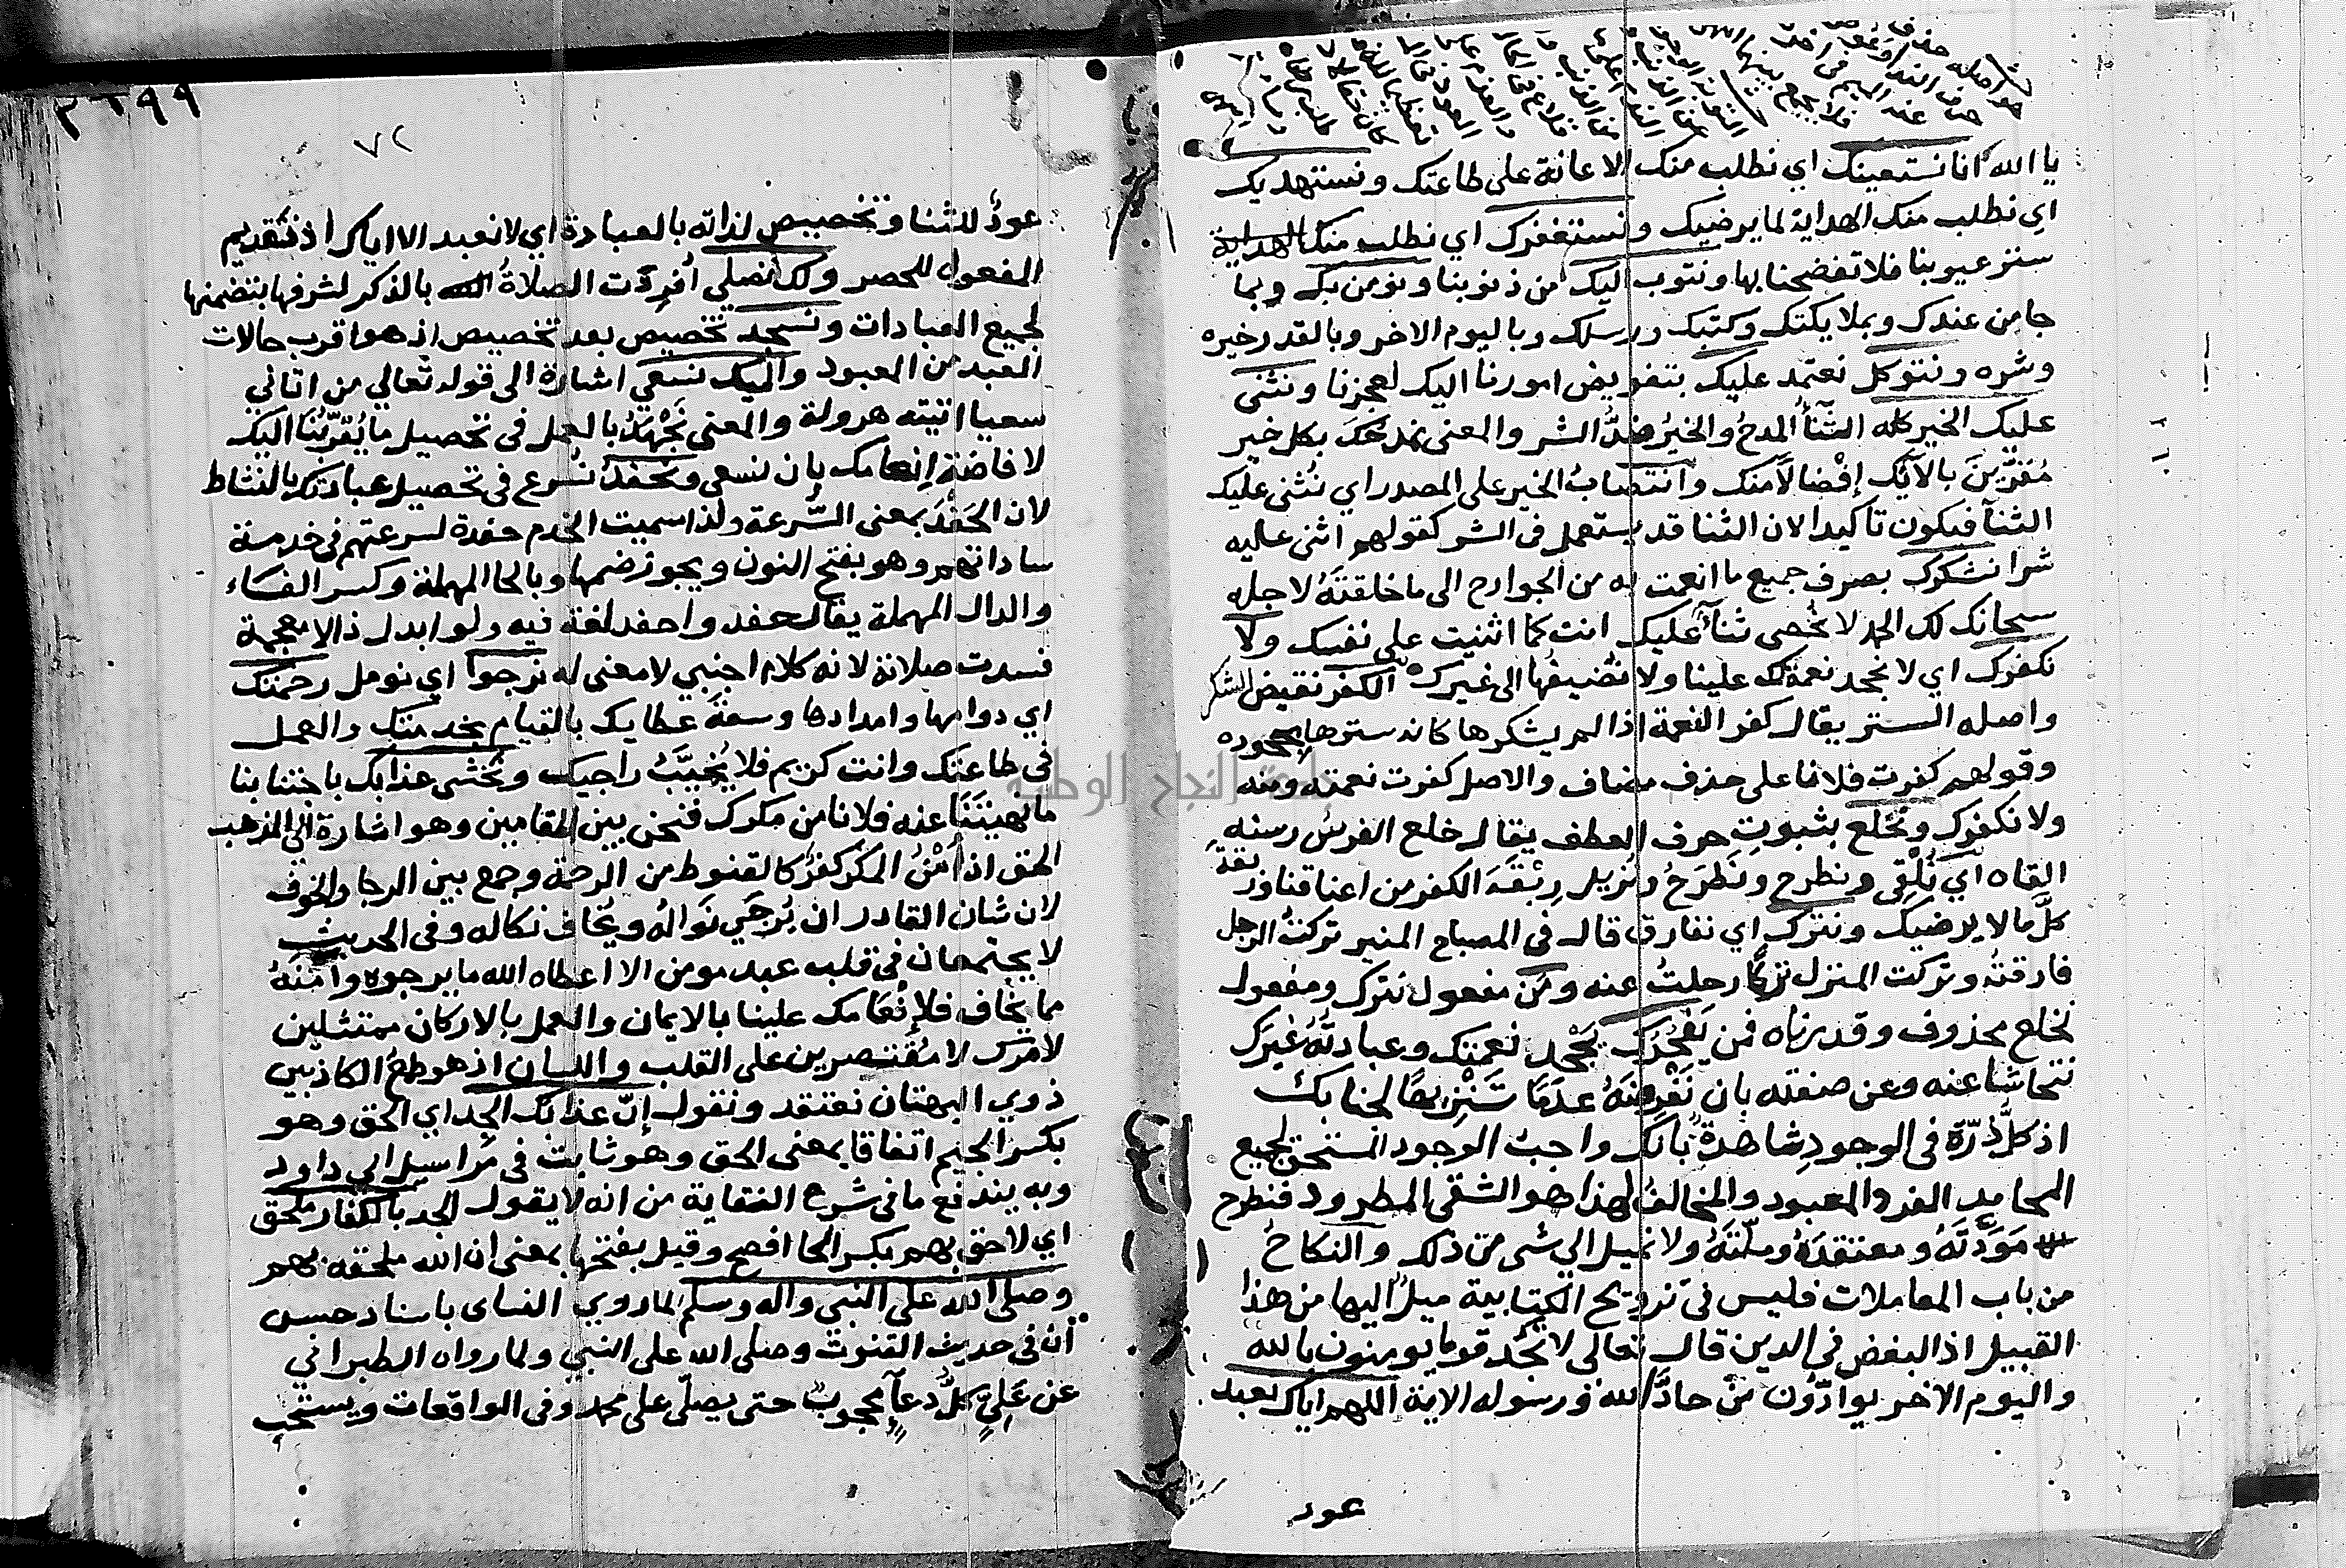 يا الله انا نستعينك اي نطلب منك الاعانة على طاعتك ونستهديك
اي نطلب منك الهداية لما يرضيك ونستغفرك اي نطلب منك
ستر عيوبنا فلا تفضحنا بها ونتوب اليك من ذنوبنا ونومن بك وبما
جا من عندك وبملايكتك وكتبك ورسلك وباليوم الاخر وبالقدر خيره
وشره ونتوكل نعتمد عليك بتفويض امورنا اليك لعجزنا ونثني
عليك الخير كله الثنأ المدح والخير ضد الشر والمعنى نمدحك بكل خير
مقرين بالآيك إفضالا منك وانتصاب الخير على المصدر اي نثني عليك
الثنآ فيكون تاكيدا لان الثنا قد يستعمل في الشر كقولهم اثنى عليه
شرا نشكرك بصرف جميع ما انعمت به من الجوارح الى ما خلقته لاجله
سبحانك لك الحمد لا نحصي ثنآء عليك انت كما اثنيت على نفسك ولا
نكفرك اي لا نجحد نعمتك علينا ولا نضيفها الى غيرك الكفر نقيض الشكر
واصله الستر يقال كفر النعمة اذا لم يشكرها كانه سترها بجحوده
وقولهم كفرت فلانا على حذف مضاف والاصل كفرت نعمته ومنه
ولا نكفرك ونخلع بثبوت حرف العطف يقال خلع الفرس رسنه
القاه اي نلقي ونطرح ونطرح ونزيل ربقة الكفر من اعناقنا وربقة
كل ما لا يرضيك ونترك اي نفارق قال في المصباح المنير تركت الرجل
فارقته وتركت المنزل تركا رحلت عنه ومن مفعول نترك ومفعول
نخلع محذوف وقدرناه فمن يفجرك يجحد نعمتك وعبادته غيرك
نتحاشا عنه وعن صفته بان نفرضه عدما تنزيها لجنابك
اذ كل ذرة في الوجود شاهدة بانك واجب الوجود المستحق لجميع
المحامد الفرد المعبود والمخالف لهذا هو الشقي المطرود فنطرح
مودته ومعتقده وملته ولا نميل الي شي من ذلك والنكاح
من باب المعاملات فليس في تزويج الكتابية ميل اليها من هذا
القبيل اذ البغض في الدين قال تعالى لا تجد قوما يومنون بالله
واليوم الاخر يوادون من حاد الله ورسوله الاية اللهم اياك نعبد
عود
٧٢
عود للثنا وتخصيص لذاته بالعبادة اي لا نعبد الا اياك اذ تقديم
المفعول للحصر ولك نصلي أفردت الصلاة بالذكر لشرفها بتضمنها
لجميع العبادات ونسجد تخصيص بعد تخصيص اذ هو اقرب حالات
العبد من المعبود واليك نسعي اشارة الى قوله تعالي من اتاني
سعيا اتيته هرولة والمعنى نجهد بالعمل في تحصيل ما يقربنا اليك
لافاضة إنعامك بان نسعي ونحفد نسرع في تحصيل عبادتك بالنشاط
لان الحفد بمعنى السرعة ولذا سميت الخدم حفدة لسرعتهم في خدمة
ساداتهم وهو بفتح النون ويجوز ضمها وبالحا المهملة وكسر الفاء
والدال المهملة يقال حفد واحفد لغة فيه ولو ابدل ذالا معجمة
فسدت صلاته لانه كلام اجنبي لا معنى له نرجوا اي نومل رحمتك
اي دوامها وامدادها وسعة عطايك بالقيام بخدمتك والعمل
في طاعتك وانت كريم فلا يخيب راجيك ونخشى عذابك باجتنابنا
ما نهيتنا عنه فلا نامن مكرك فنحن بين المقامين وهو اشارة الى المذهب
الحق اذ أمن المكر كفر كالقنوط من الرحمة وجمع بين الرجا والخوف
لان شان القادر ان يرجي نواله ويخاف نكاله وفى الحديث
لا يجتمعان في قلب عبد مومن الا اعطاه الله ما يرجوه وامنه
مما يخاف فلإنعامك علينا بالايمان والعمل بالاركان ممتثلين
لامرك لا مقتصرين على القلب واللسان اذ هو طمع الكاذبين
ذوي البهتان نعتقد ونقول إن عذابك الجد اي الحق وهو
بكسر الجيم اتفاقا بمعنى الحق وهو ثابت في مراسيل ابي داود
وبه يندفع ما في شرح النقاية من انه لا يقول الجد بالكفار ملحق
اي لاحق بهم بكسر الحا افصح وقيل بفتحها بمعنى ان الله ملحقه بهم
وصلى الله على النبي واله وسلم لما روي النساى باسناد حسن
ان في حديث القنوت وصلى الله على النبي ولما رواه الطبراني
عن علي كل دعآء محجوب حتى يصلى على محمد وفي الواقعات ويستحب
جامعة النجاح الوطنية